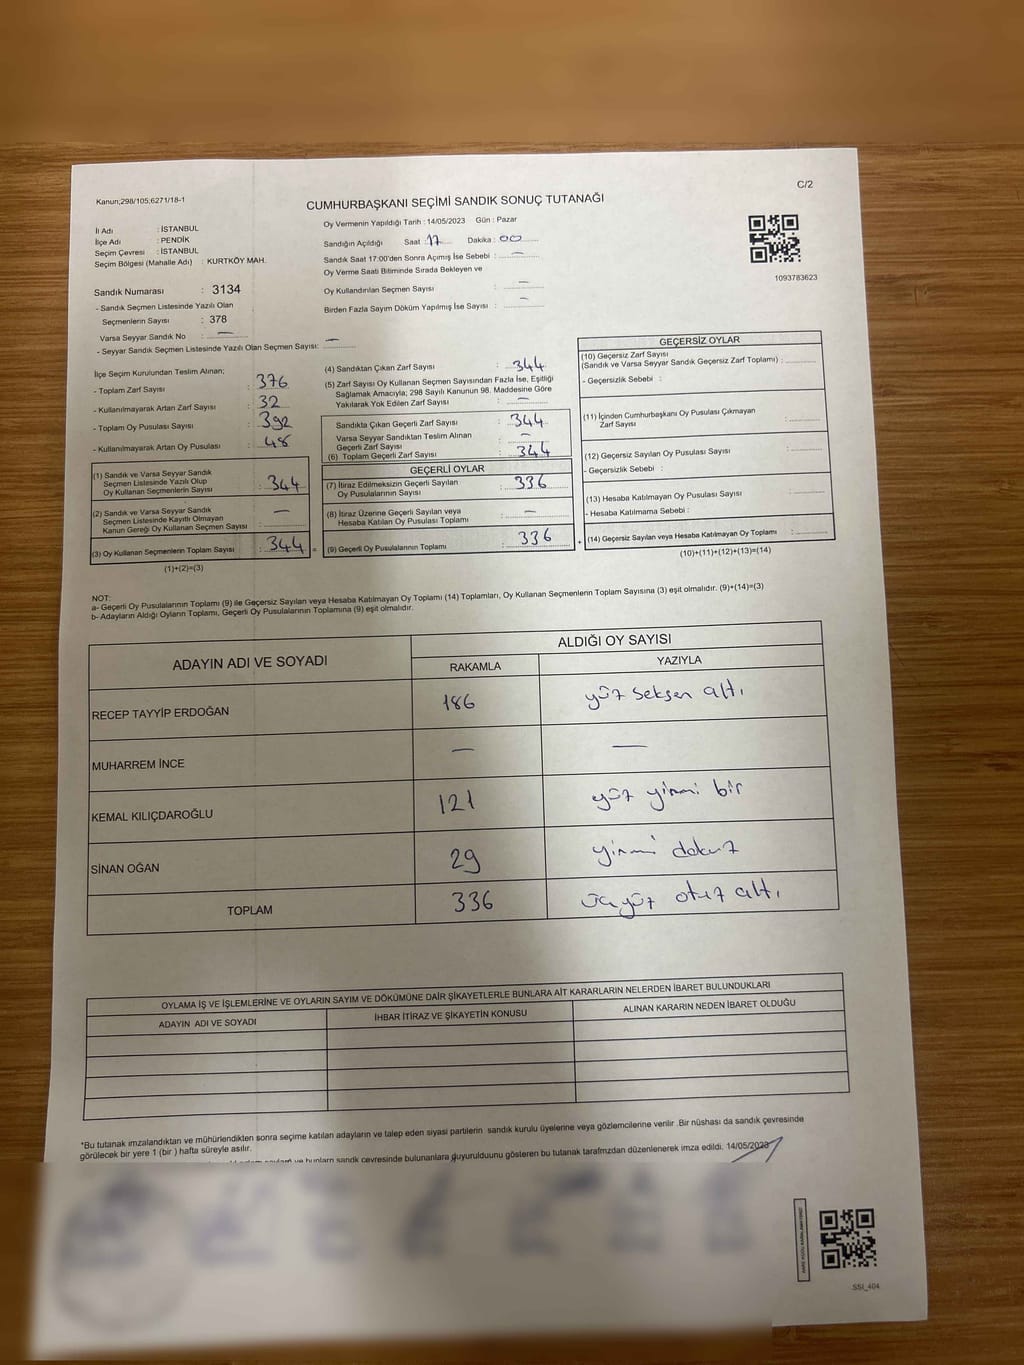 C/2
Kanun;298/105;6271/18-1
CUMHURBAŞKANI SEÇİMİ SANDIK SONUÇ TUTANAĞI
Oy Vermenin Yapıldığı Tarih : 14/05/2023 Gün : Pazar
İl Adı : İSTANBUL
İlçe Adı : PENDİK
Seçim Çevresi : İSTANBUL
Seçim Bölgesi (Mahalle Adı) : KURTKÖY MAH.
Sandık Numarası : 3134
- Sandık Seçmen Listesinde Yazılı Olan
Seçmenlerin Sayısı : 378
Varsa Seyyar Sandık No : —
- Seyyar Sandık Seçmen Listesinde Yazılı Olan Seçmen Sayısı: —
Sandığın Açıldığı Saat : 17 Dakika : 00
Sandık Saat 17:00'den Sonra Açımış İse Sebebi : —
Oy Verme Saati Bitiminde Sırada Bekleyen ve
Oy Kullandırılan Seçmen Sayısı : —
Birden Fazla Sayım Döküm Yapılmış İse Sayısı : —
1093783623
İlçe Seçim Kurulundan Teslim Alınan;
- Toplam Zarf Sayısı : 376
- Kullanılmayarak Artan Zarf Sayısı : 32
- Toplam Oy Pusulası Sayısı : 392
- Kullanılmayarak Artan Oy Pusulası : 48
(1) Sandık ve Varsa Seyyar Sandık
Seçmen Listesinde Yazılı Olup
Oy Kullanan Seçmenlerin Sayısı : 344
(2) Sandık ve Varsa Seyyar Sandık
Seçmen Listesinde Kayıtlı Olmayan
Kanun Gereği Oy Kullanan Seçmen Sayısı : —
(3) Oy Kullanan Seçmenlerin Toplam Sayısı : 344 =
(1)+(2)=(3)
(4) Sandıktan Çıkan Zarf Sayısı : 344
(5) Zarf Sayısı Oy Kullanan Seçmen Sayısından Fazla İse, Eşitliği
Sağlamak Amacıyla; 298 Sayılı Kanunun 98. Maddesine Göre
Yakılarak Yok Edilen Zarf Sayısı : —
Sandıkta Çıkan Geçerli Zarf Sayısı : 344
Varsa Seyyar Sandıktan Teslim Alınan
Geçerli Zarf Sayısı : —
(6) Toplam Geçerli Zarf Sayısı : 344
GEÇERLİ OYLAR
(7) İtiraz Edilmeksizin Geçerli Sayılan
Oy Pusulalarının Sayısı : 336
(8) İtiraz Üzerine Geçerli Sayılan veya
Hesaba Katılan Oy Pusulası Toplamı : —
(9) Geçerli Oy Pusulalarının Toplamı : 336 +
GEÇERSİZ OYLAR
(10) Geçersiz Zarf Sayısı
(Sandık ve Varsa Seyyar Sandık Geçersiz Zarf Toplamı) :
- Geçersizlik Sebebi :
(11) İçinden Cumhurbaşkanı Oy Pusulası Çıkmayan
Zarf Sayısı :
(12) Geçersiz Sayılan Oy Pusulası Sayısı :
- Geçersizlik Sebebi :
(13) Hesaba Katılmayan Oy Pusulası Sayısı :
- Hesaba Katılmama Sebebi :
(14) Geçersiz Sayılan veya Hesaba Katılmayan Oy Toplamı :
(10)+(11)+(12)+(13)=(14)
NOT:
a- Geçerli Oy Pusulalarının Toplamı (9) ile Geçersiz Sayılan veya Hesaba Katılmayan Oy Toplamı (14) Toplamları, Oy Kullanan Seçmenlerin Toplam Sayısına (3) eşit olmalıdır. (9)+(14)=(3)
b- Adayların Aldığı Oyların Toplamı, Geçerli Oy Pusulalarının Toplamına (9) eşit olmalıdır.
ADAYIN ADI VE SOYADI
ALDIĞI OY SAYISI
RAKAMLA YAZIYLA
RECEP TAYYİP ERDOĞAN 186 yüz seksen altı
MUHARREM İNCE — —
KEMAL KILIÇDAROĞLU 121 yüz yirmi bir
SİNAN OĞAN 29 yirmi dokuz
TOPLAM 336 üçyüz otuz altı
OYLAMA İŞ VE İŞLEMLERİNE VE OYLARIN SAYIM VE DÖKÜMÜNE DAİR ŞİKAYETLERLE BUNLARA AİT KARARLARIN NELERDEN İBARET BULUNDUKLARI
ADAYIN ADI VE SOYADI İHBAR İTİRAZ VE ŞİKAYETİN KONUSU ALINAN KARARIN NEDEN İBARET OLDUĞU
*Bu tutanak imzalandıktan ve mühürlendikten sonra seçime katılan adayların ve talep eden siyasi partilerin sandık kurulu üyelerine veya gözlemcilerine verilir .Bir nüshası da sandık çevresinde
görülecek bir yere 1 (bir ) hafta süreyle asılır.
ve bunların sandık çevresinde bulunanlara duyurulduunu gösteren bu tutanak tarafımızdan düzenlenerek imza edildi. 14/05/2023
SSI_404